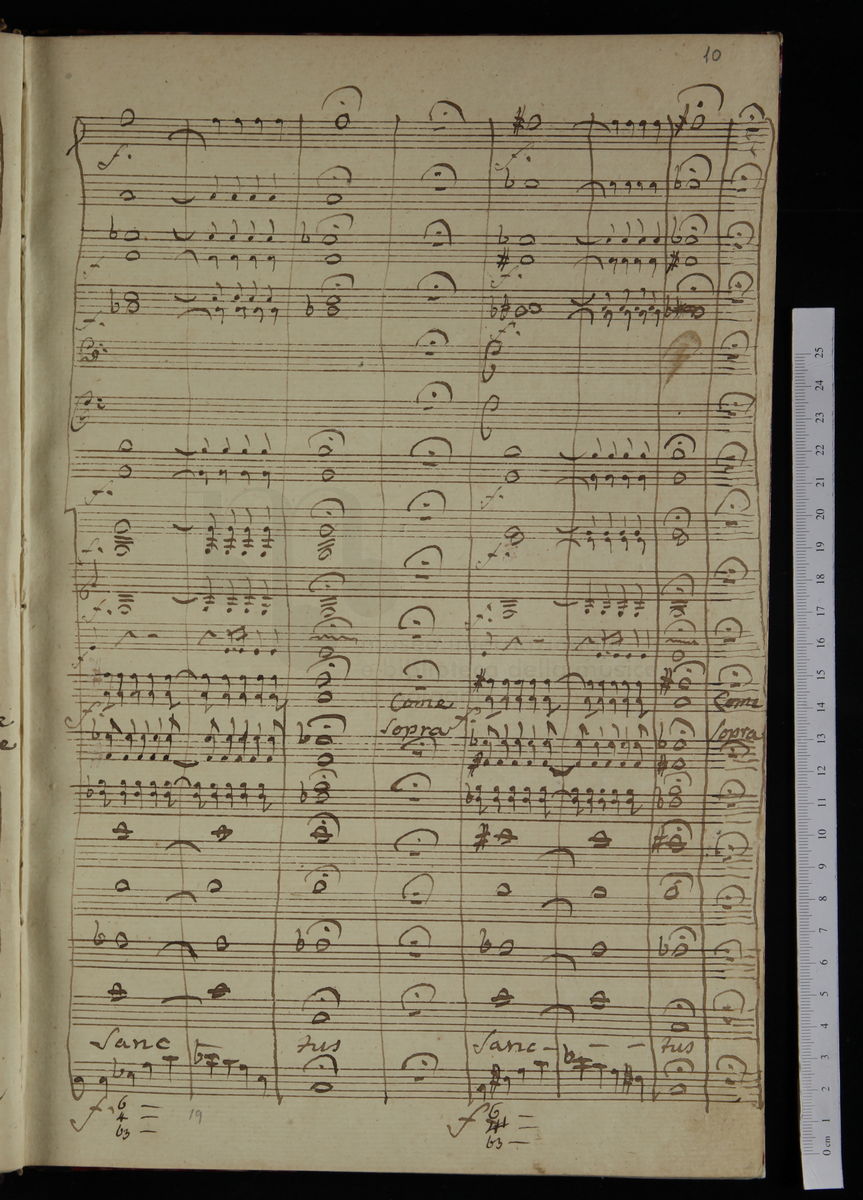 10
f.
f.
f.
f.
Come
Come
sopra
sopra
Sanc tus Sanc - - - tus
f. 6 — 19 f 6 —
4 — 4 —
b3 — b3 —
25
24
23
22
21
20
19
18
17
16
15
14
13
12
11
10
9
8
7
6
5
4
3
2
1
0 cm